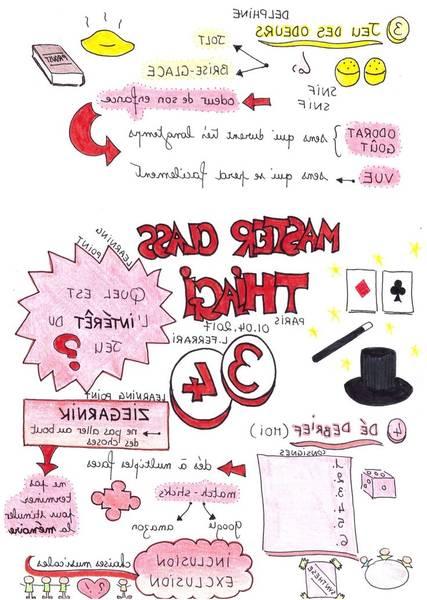 DELPHINE
3 JEU DES ODEURS
JOLT
BRISE-GLACE
SNIF
SNIF
PROUST
odeur de son enfance
ODORAT
GOÛT
sens qui durent très longtemps
VUE
sens qui se perd facilement
MASTER CLASS
THIAGI
PARIS
01.04.2017
L.FERRARI
3
4
LEARNING
POINT
QUEL EST
L'INTÉRÊT DU
JEU
?
4 DÉ DEBRIEF (MOI)
CONSIGNES
1.
2.
3.
4.
5.
6.
SYNTHÈSE
LEARNING POINT
ZIEGARNIK
ne pas aller au bout
des choses
ne pas
terminer
pour stimuler
la mémoire
dés à multiples faces
match sticks
google
amazon
INCLUSION
EXCLUSION
chaises musicales
?